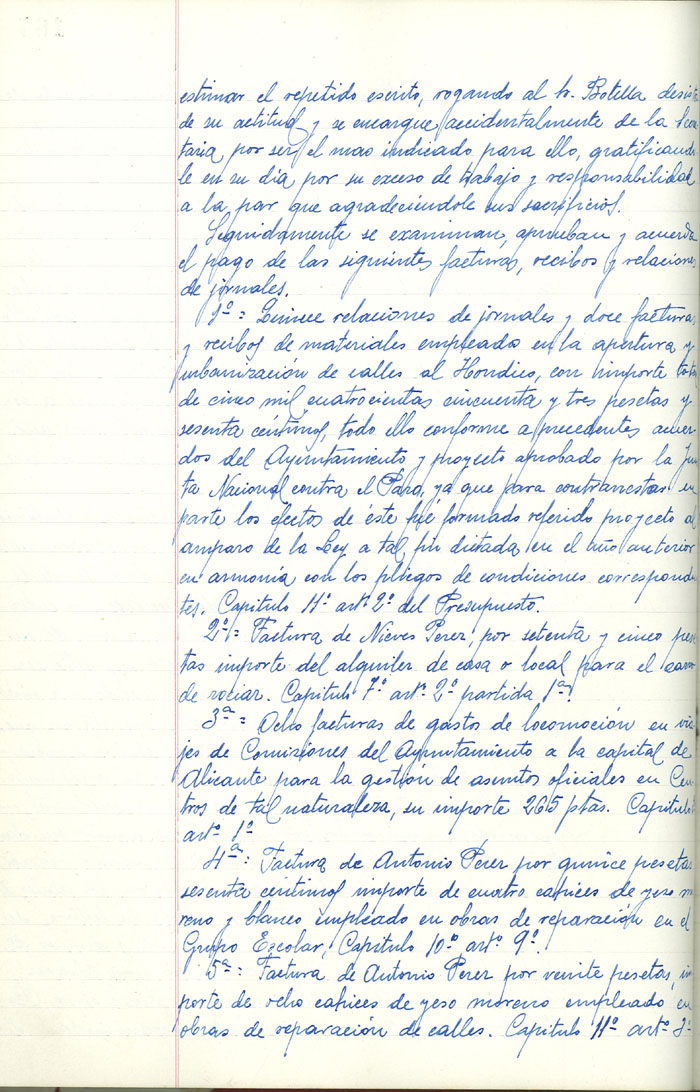 estimar el repetido escrito, rogando al Sr. Botella desis
de su actitud y se encargue accidentalmente de la Secre
taria por ser el mas indicado para ello, gratificando
le en su dia por su exceso de trabajo y responsabilidad
a la par que agradeciéndole sus sacrificios.
Seguidamente se examinan, aprueban y acuerda
el pago de las siguientes facturas, recibos y relaciones
de jornales.
1º = Quince relaciones de jornales y doce facturas
y recibos de materiales empleados en la apertura y
urbanización de calles al Hondico, con himporte total
de cinco mil cuatrocientas cincuenta y tres pesetas y
sesenta céntimos, todo ello conforme a precedentes acuer
dos del Ayuntamiento y proyecto aprobado por la Jun
ta Nacional contra el Paro, ya que para contrarrestar en
parte los efectos de éste fué formado referido proyecto al
amparo de la Ley a tal fin dictada en el año anterior
en armonía con los pliegos de condiciones correspondien
tes. Capitulo 11º artº 2º del Presupuesto.
2ª = Factura de Nieves Perez, por setenta y cinco pese
tas importe del alquiler de casa o local para el carro
de rociar. Capitulo 7º artº 2º partida 1ª.
3ª = Ocho facturas de gastos de locomoción en via
jes de Comisiones del Ayuntamiento a la capital de
Alicante para la gestión de asuntos oficiales en Cen
tros de tal naturaleza, su importe 265 ptas. Capitulo
artº 1º
4ª = Factura de Antonio Perez por quince pesetas
sesenta céntimos importe de cuatro cahices de yeso mo
reno y blanco empleado en obras de reparación en el
Grupo Escolar, Capitulo 10º artº 9º.
5ª = Factura de Antonio Perez por veinte pesetas, im
porte de ocho cahices de yeso moreno empleado en
obras de reparación de calles. Capitulo 11º artº 3º